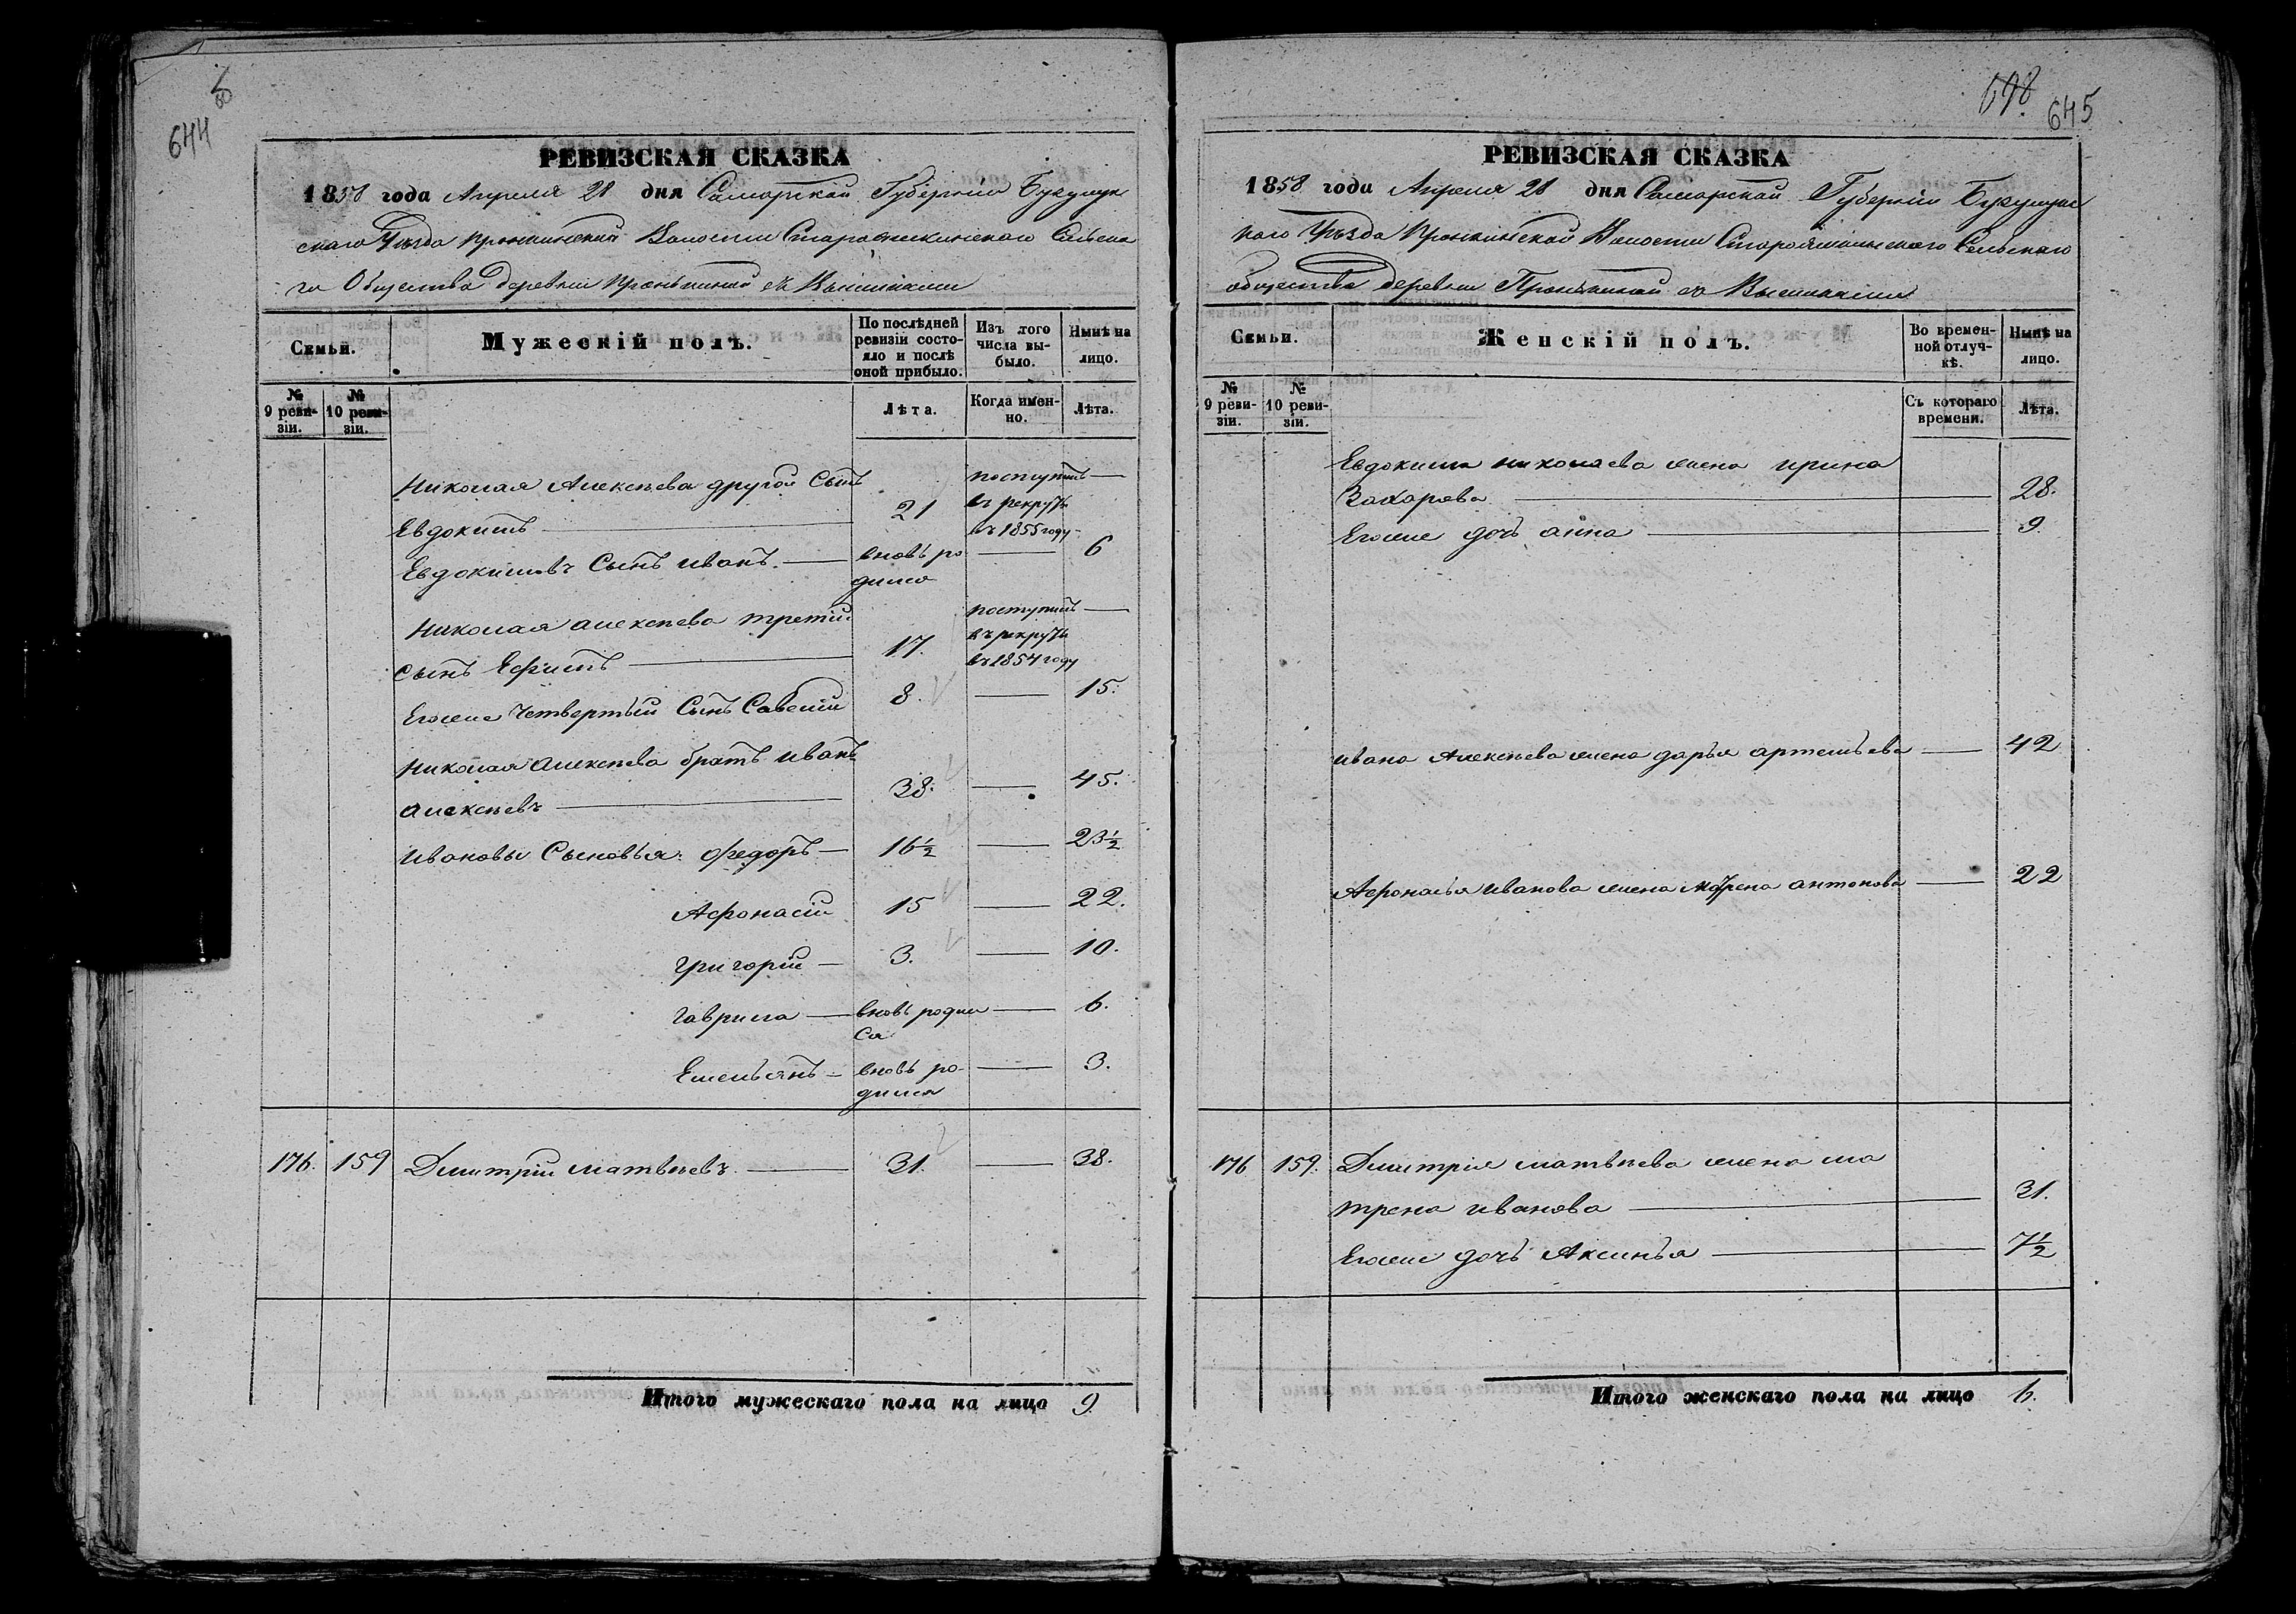 644
РЕВИЗСКАЯ СКАЗКА
1858 года Апреля 28 дня Самарской Губерніи Бузулук
скаго Уѣзда Волости Сельска
го Общества деревни Пронькиной съ
Семьи.
Мужескій полъ.
По послѣдней ревизіи состояло и послѣ оной прибыло.
Изъ того числа выбыло.
Нынѣ на лицо.
№ 9 ревизіи.
№ 10 ревизіи.
Лѣта.
Когда именно.
Лѣта.
Николая Алексѣева другой Сынъ
Евдокимъ 21 поступилъ въ рекруты въ 1855 году
Евдокимовъ Сынъ иванъ. вновь ро 6
дился
Николая алексѣева третій
сынъ Ефимъ 17. поступилъ въ рекруты въ 1854 году
Егоже Четвертый Сынъ Савелій 8. 15.
Николая алексѣева братъ иванъ
алексѣевъ 38. 45.
Ивановы Сыновья: Федоръ 16½ 23½
Афонасій 15 22.
Григорій 3. 10.
Гаврила вновь родил 6.
ся
Емельянъ вновь ро- 3.
дился
176. 159 Дмитрій матвѣевъ. 31. 38.
Итого мужескаго пола на лицо 9.
698
645
РЕВИЗСКАЯ СКАЗКА
1858 года Апреля 28 дня Самарской Губерніи Бузулукс
каго Уѣзда Волости Сельскаго
общества деревни Пронькиной съ
Семьи.
Женскій полъ.
Во временной отлучкѣ.
Нынѣ на лицо.
№ 9 ревизіи.
№ 10 ревизіи.
Съ котораго времени.
Лѣта.
Евдокима николаева жена ирина
Захарова 28.
Егоже дочь анна 9.
ивана Алексѣева жена дарья артемьева 42
Афонасья иванова жена антонова 22
176 159. Дмитрія матвѣева жена ма
трена иванова 31.
Егоже дочь Аксинья 7½
Итого женскаго пола на лицо 6.